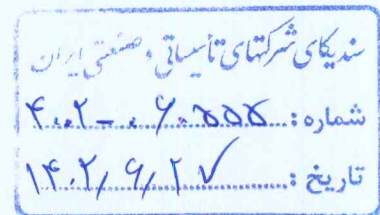 سندیکای شرکتهای تأسیساتی و صنعتی ایران
شماره: ۴۰۲-۰۶۰۵۵۵
تاریخ: ۱۴۰۲/۶/۲۷